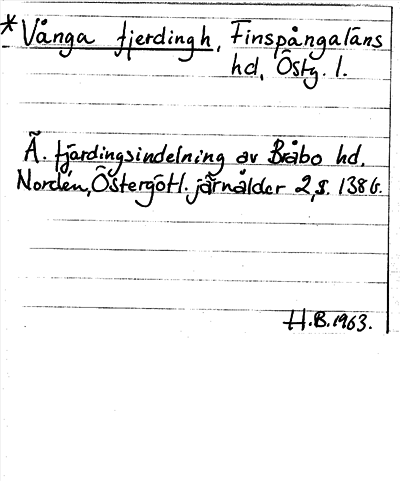 * Vånga fjerdingh, Finspångaläns
hd, Östg. l.
Ä. fjardingsindelning av Bråbo hd.
Nordén, Östergötl. järnålder 2, s. 138 f.
H.B. 1963.